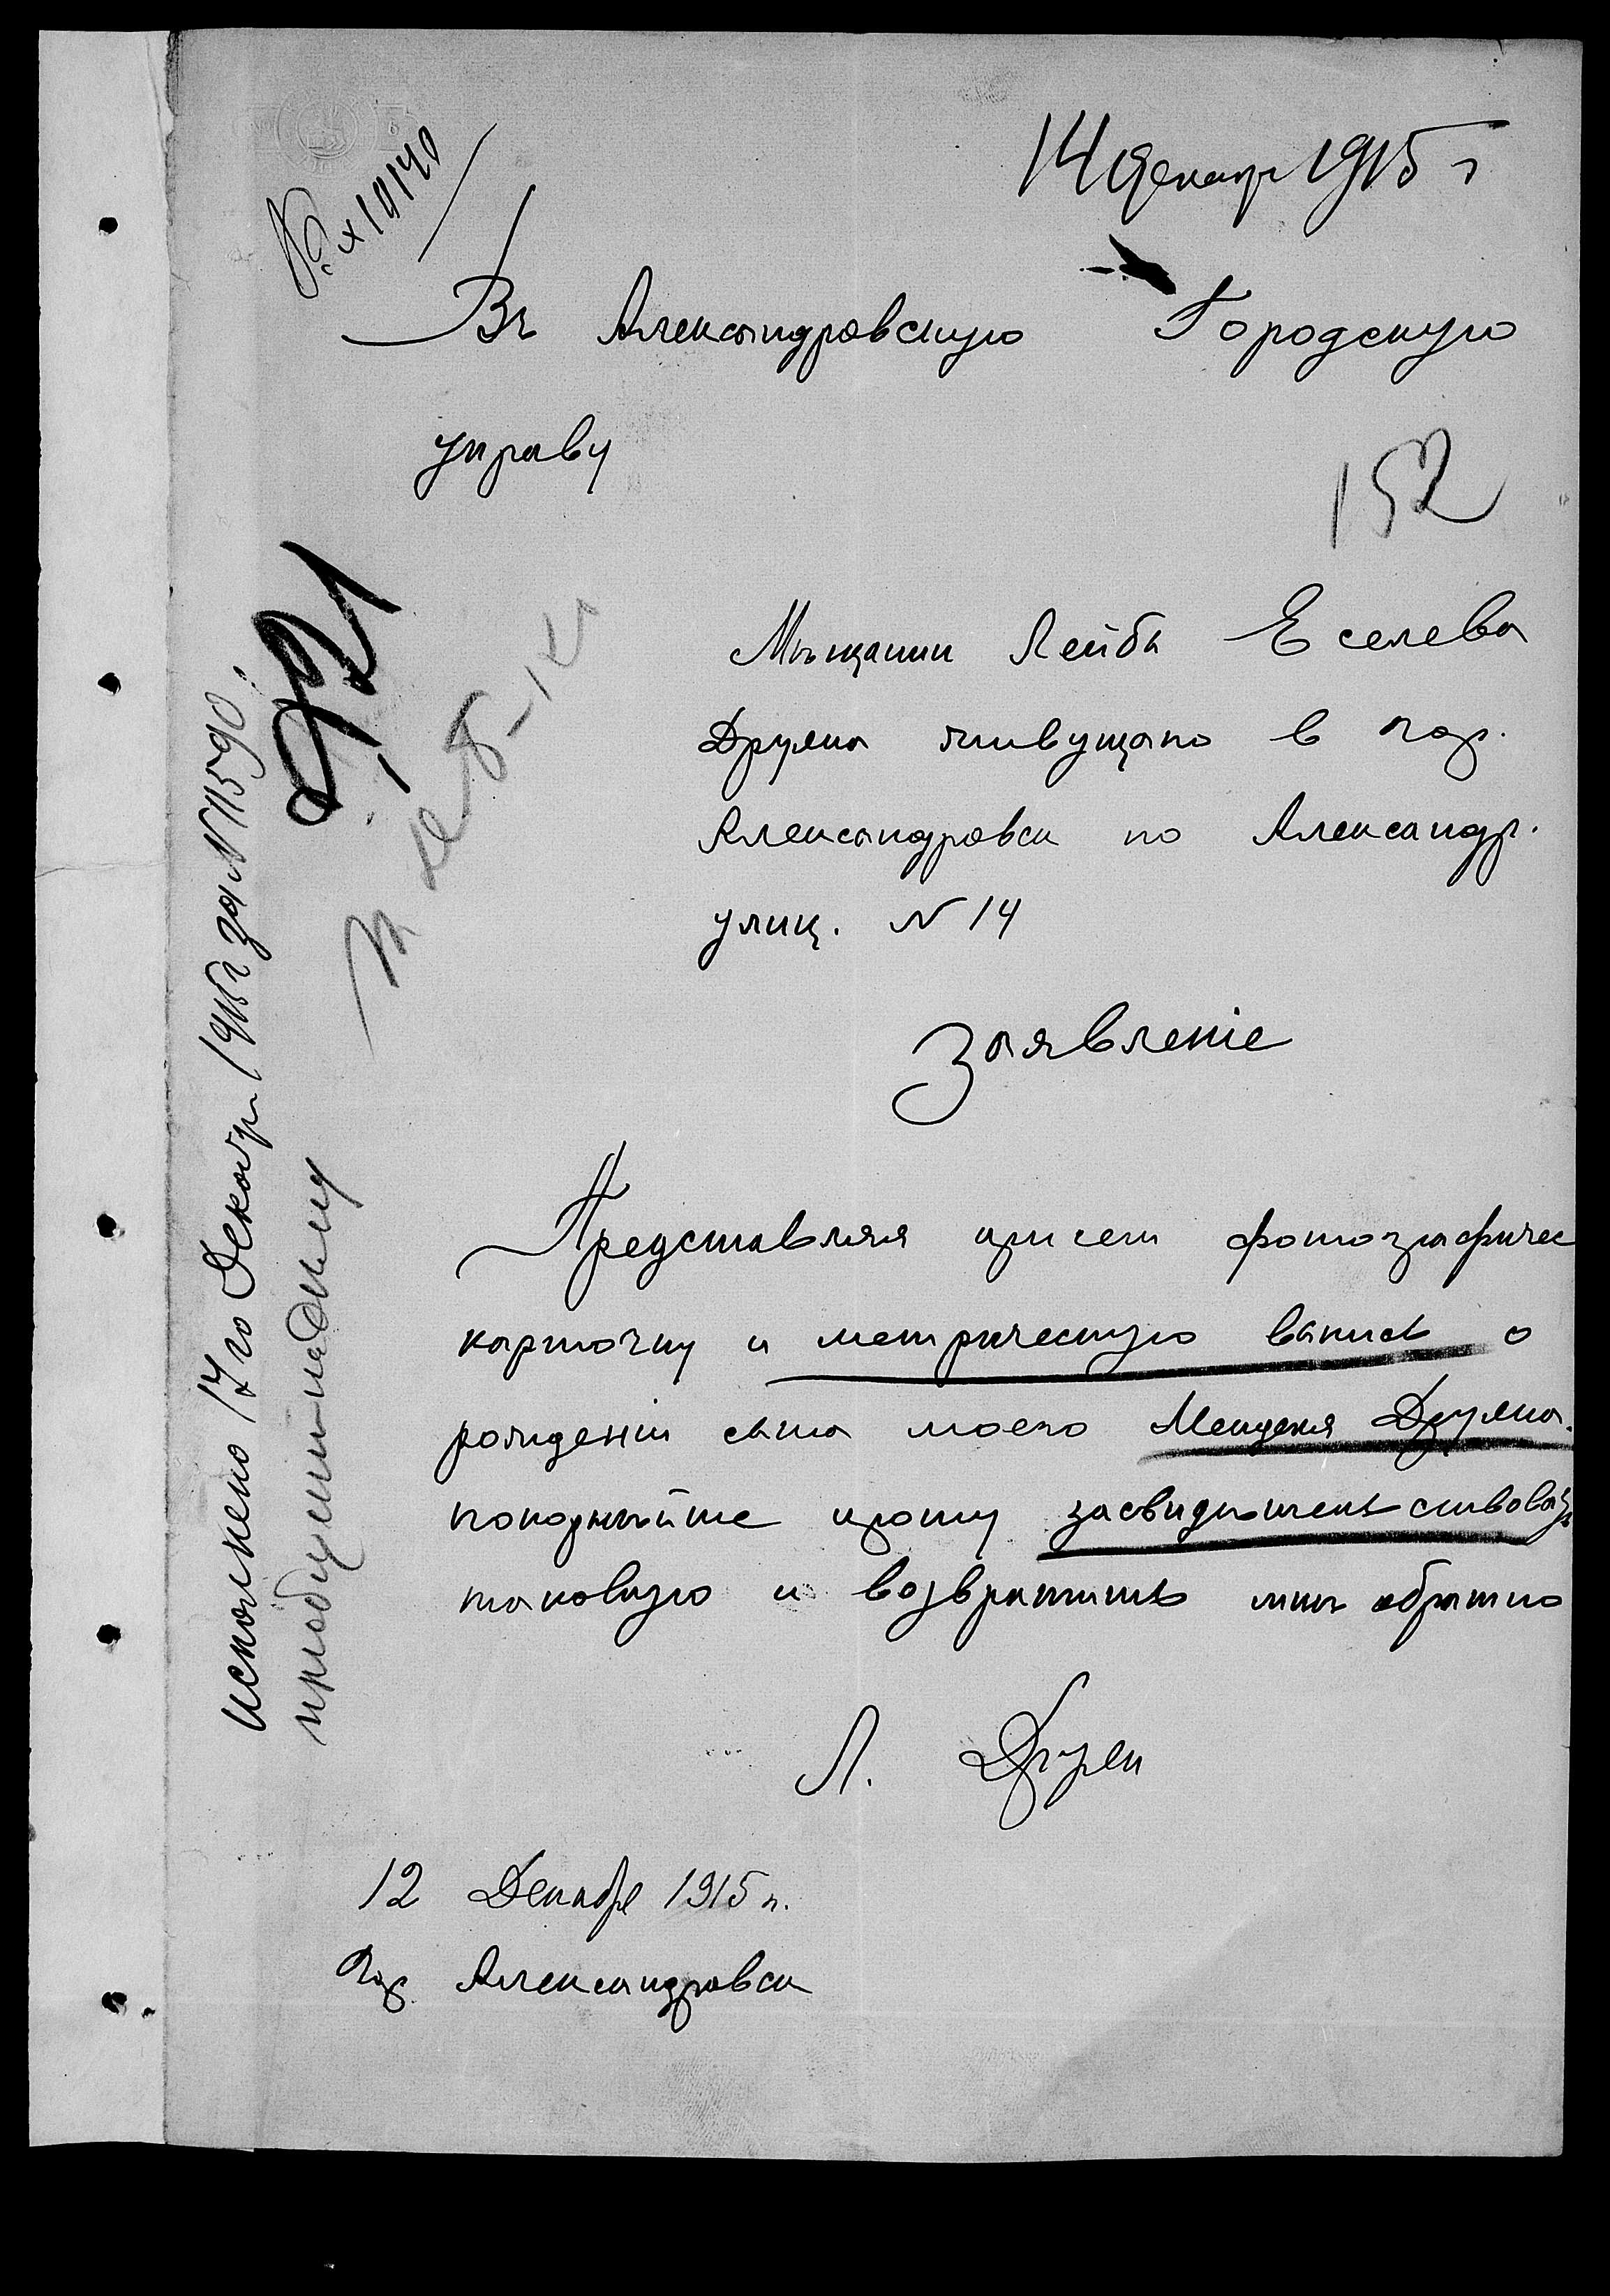 14 Декабр 1915 г
№ х 10140
Въ Александровскую Городскую
управу
152
Мѣщанин Лейба Еселева
Друяна живущаго в гор.
Александровск по Александр.
улиц. N 14
Заявленіе
Представляя при сем фотографичес
карточку и метрическую выпись о
рожденіи сына моего Менделя Друяна.
покорнѣйше прошу засвидѣтельствовать
таковую и возвратить мнѣ обратно
Л. Друян
12 Декабр 1915 г.
Гор Александровск
исполнено 17го Декабр 1915 г за N 11590.